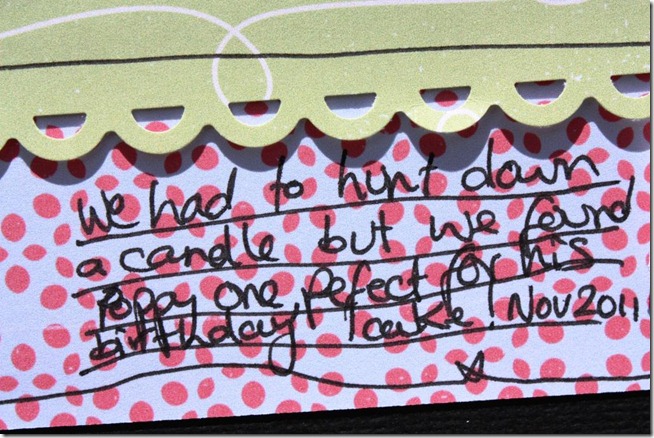 we had to hunt down
a candle but we found
Poppy one pefect for his
birthday cake! Nov 2011